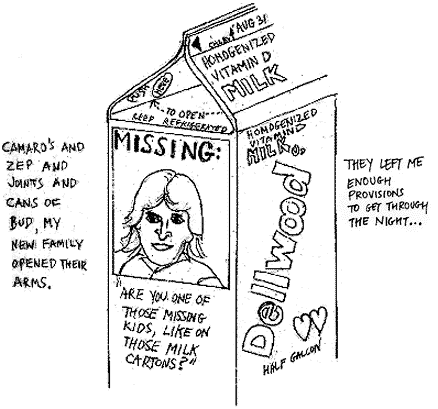 CAMARO'S AND
ZEP AND
JOINTS AND
CANS OF
BUD, MY
NEW FAMILY
OPENED THEIR
ARMS.
AUG 31
HOMOGENIZED
VITAMIN D
MILK
PUSH
HERE
TO OPEN
KEEP REFRIGERATED
MISSING:
"ARE YOU ONE OF
THOSE MISSING
KIDS, LIKE ON
THOSE MILK
CARTONS?"
HOMOGENIZED
VITAMIN D
MILK
Dellwood
HALF GALLON
THEY LEFT ME
ENOUGH
PROVISIONS
TO GET THROUGH
THE NIGHT...